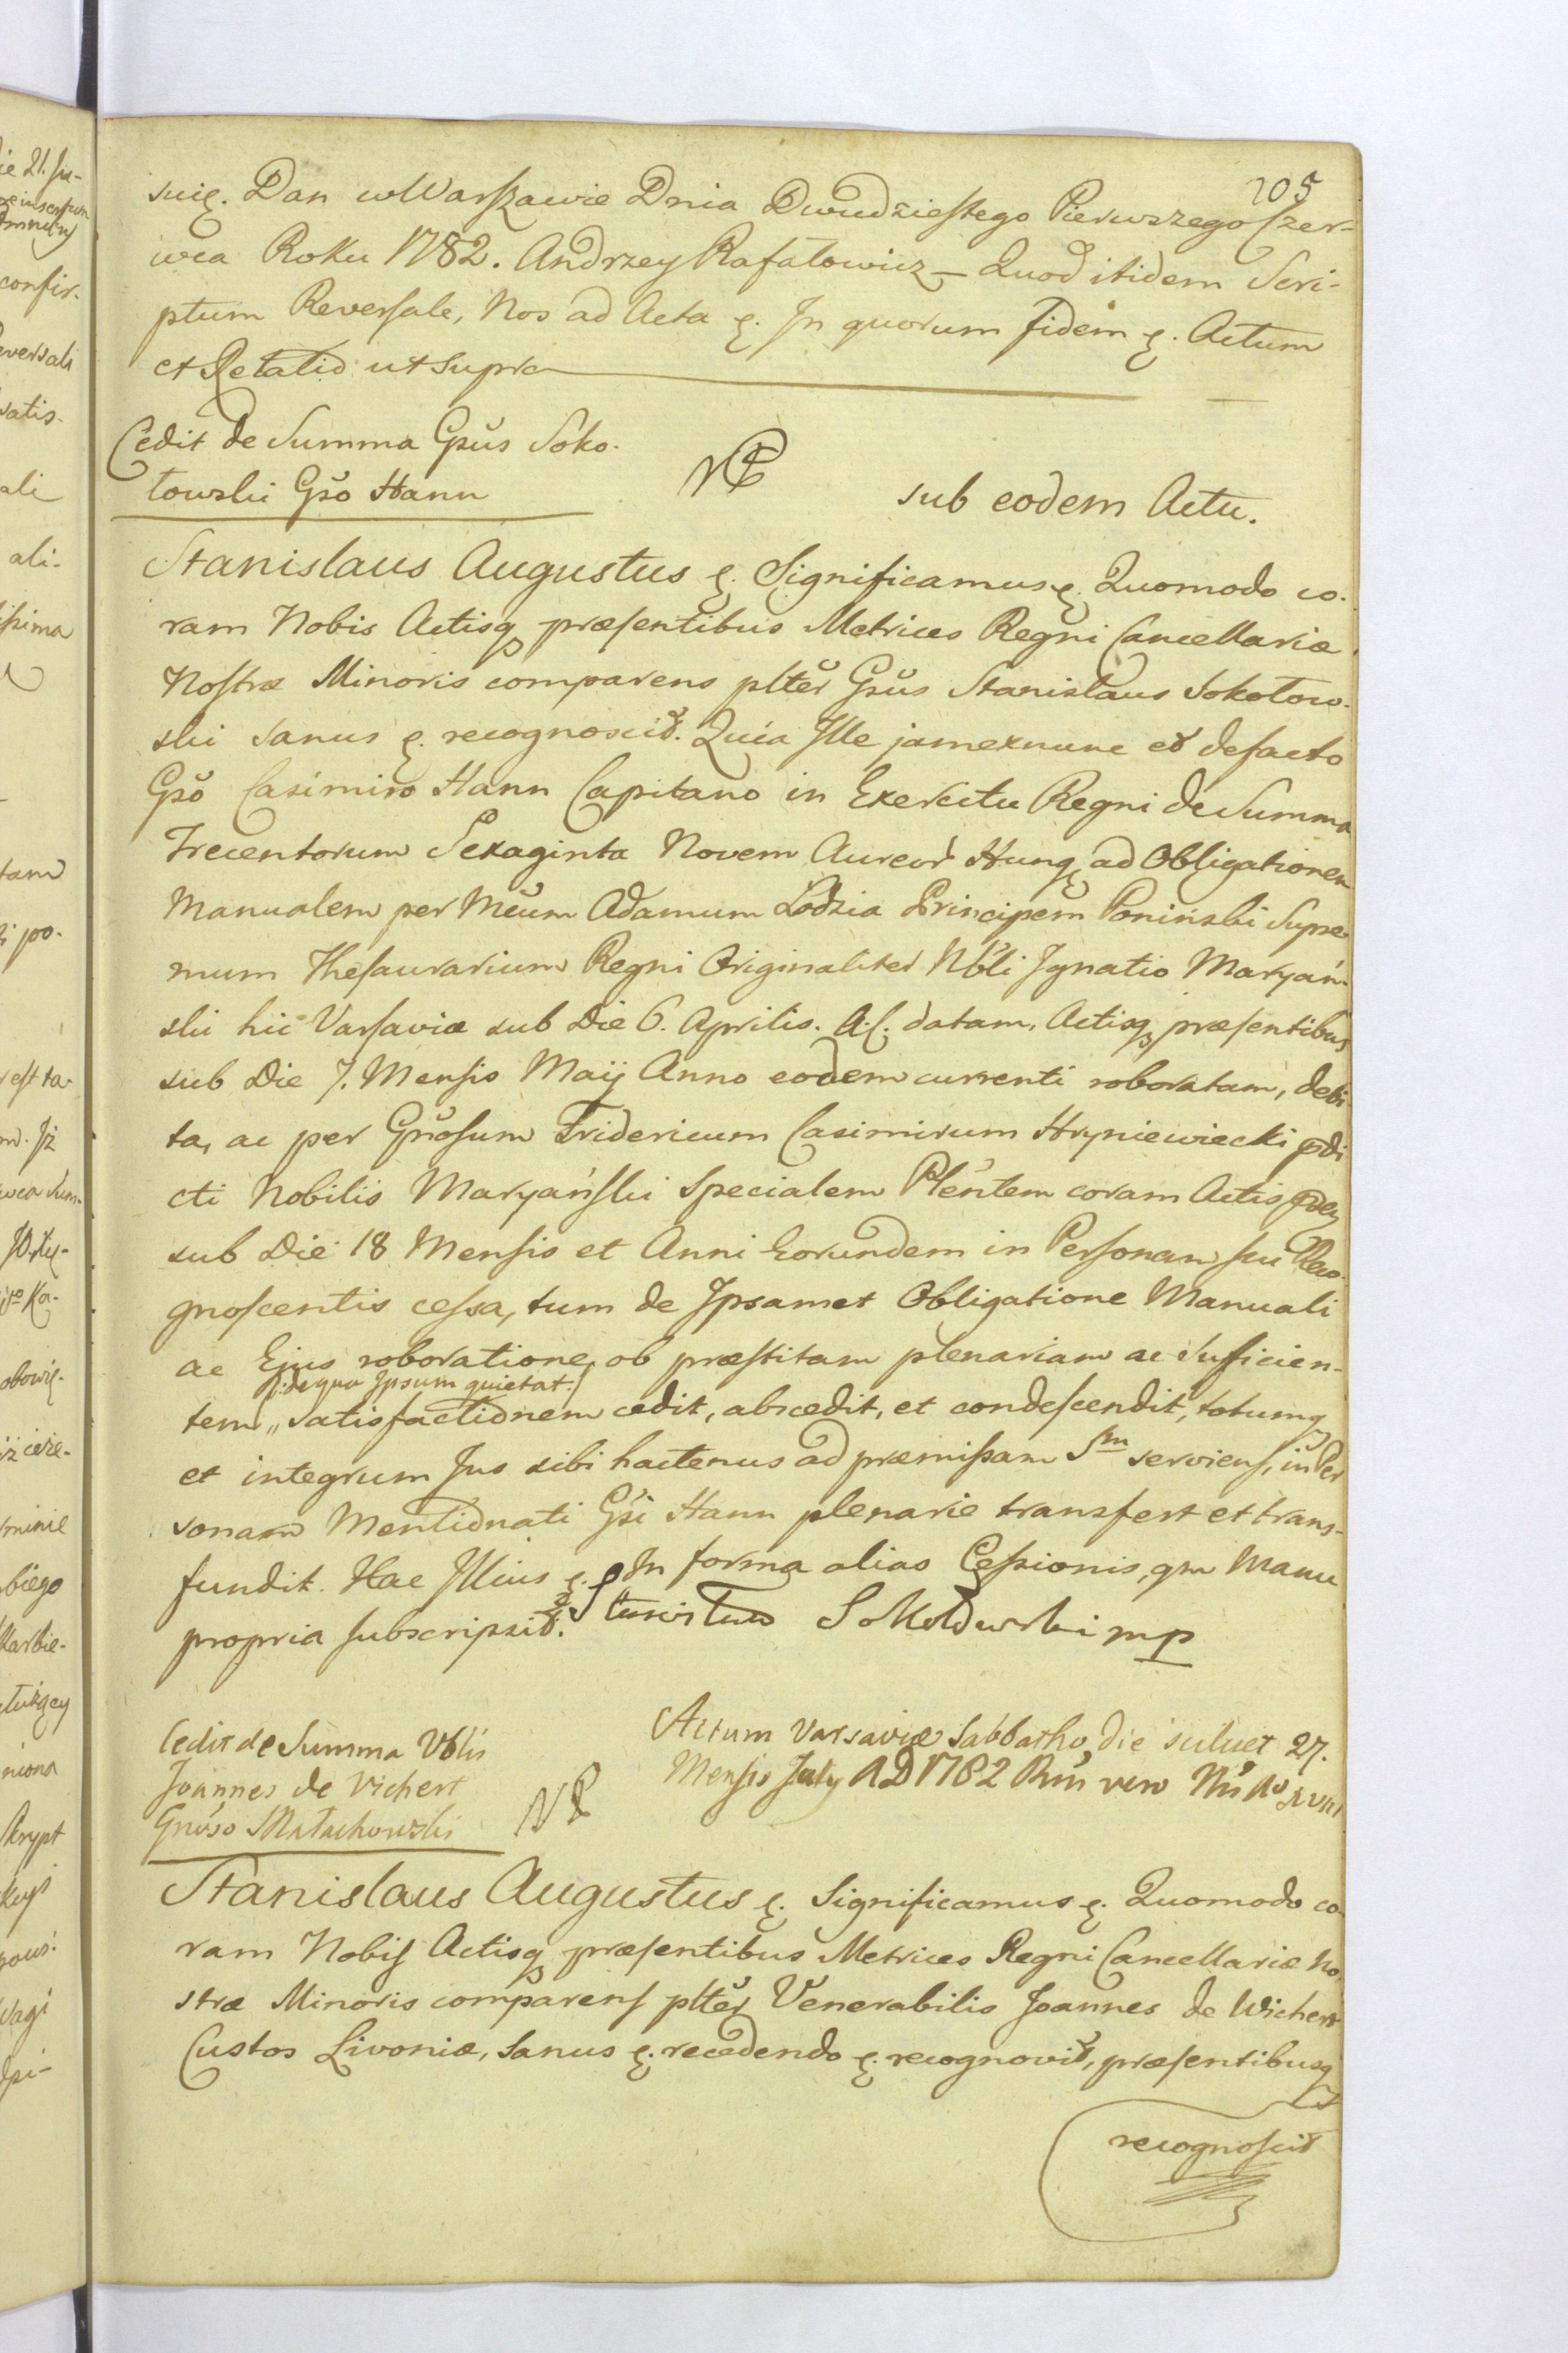 205
suię. Dan w Warszawie Dnia Dwudziestego Pierwszego Czer-
wca Roku 1782. Andrzey Rafałowicz – Quod itidem Scri-
ptum Reversale, Nos ad Acta ę. In quorum fidem ę. Actum
et Relatio ut supra
Cedit de Summa Gsus Soko-
łowski Gso Hann
sub eodem Actu.
Stanislaus Augustus ę. Significamus ę. Quomodo co-
ram Nobis Actisq præsentibus Metrices Regni Cancellariæ
Nostræ Minoris comparens plter Gsus Stanislaus Sokołow-
ski sanus ę. recognoscit. Quia Ille jamexnunc et defacto
Gso Casimiro Hann Capitano in Exercitu Regni de Summa
Trecentorum Sexaginta Novem Aureor Hung ad Obligationem
Manualem per Mcum Adamum Łodzia Principem Poniński Supre-
mum Thesaurarium Regni Originaliter Nbli Ignatio Maryań-
ski hic Varsaviæ sub Die 6. Aprilis. A. C. datam, Actisq præsentibus
sub Die 7. Mensis Maij Anno eodem currenti roboratam, debi-
ta, ac per Gnosum Fridericum Casimirum Hryniewiecki pdi
cti Nobilis Maryański Specialem Plentem coram Actis
sub Die 18 Mensis et Anni Eorundem in Personam sui Reco-
gnoscentis cessa, tum de Ipsamet Obligatione Manuali
ac Ejus roboratione, ob præstitam plenariam ac suficien-
/:de qua Ipsum quietat:/
tem,, satisfactionem cedit, abscedit, et condescendit, totumq
et integrum Jus sibi hactenus ad præmissam Sm serviens, in Per
sonam Mentionati Gsi Hann plenarie transfert et trans-
fundit. Hac Illius ę. In forma alias Cessionis, qm Manu
propria subscripsit. Stanisław Sokołowski mp
Cedit de Summa Vblis
Joannes de Vichert
Gnoso Małachowski
Actum Varsaviæ Sabbatho die scilicet 27.
Mensis July AD 1782 Rni vero Nri Ao XVIII
Stanislaus Augustus ę. Significamus ę. Quomodo co-
ram Nobis Actisq præsentibus Metrices Regni Cancellariæ No
stræ Minoris comparens plter Venerabilis Joannes de Wichert
Custos Livoniæ, sanus ę. recedendo ę. recognovit, præsentibusq
recognoscit